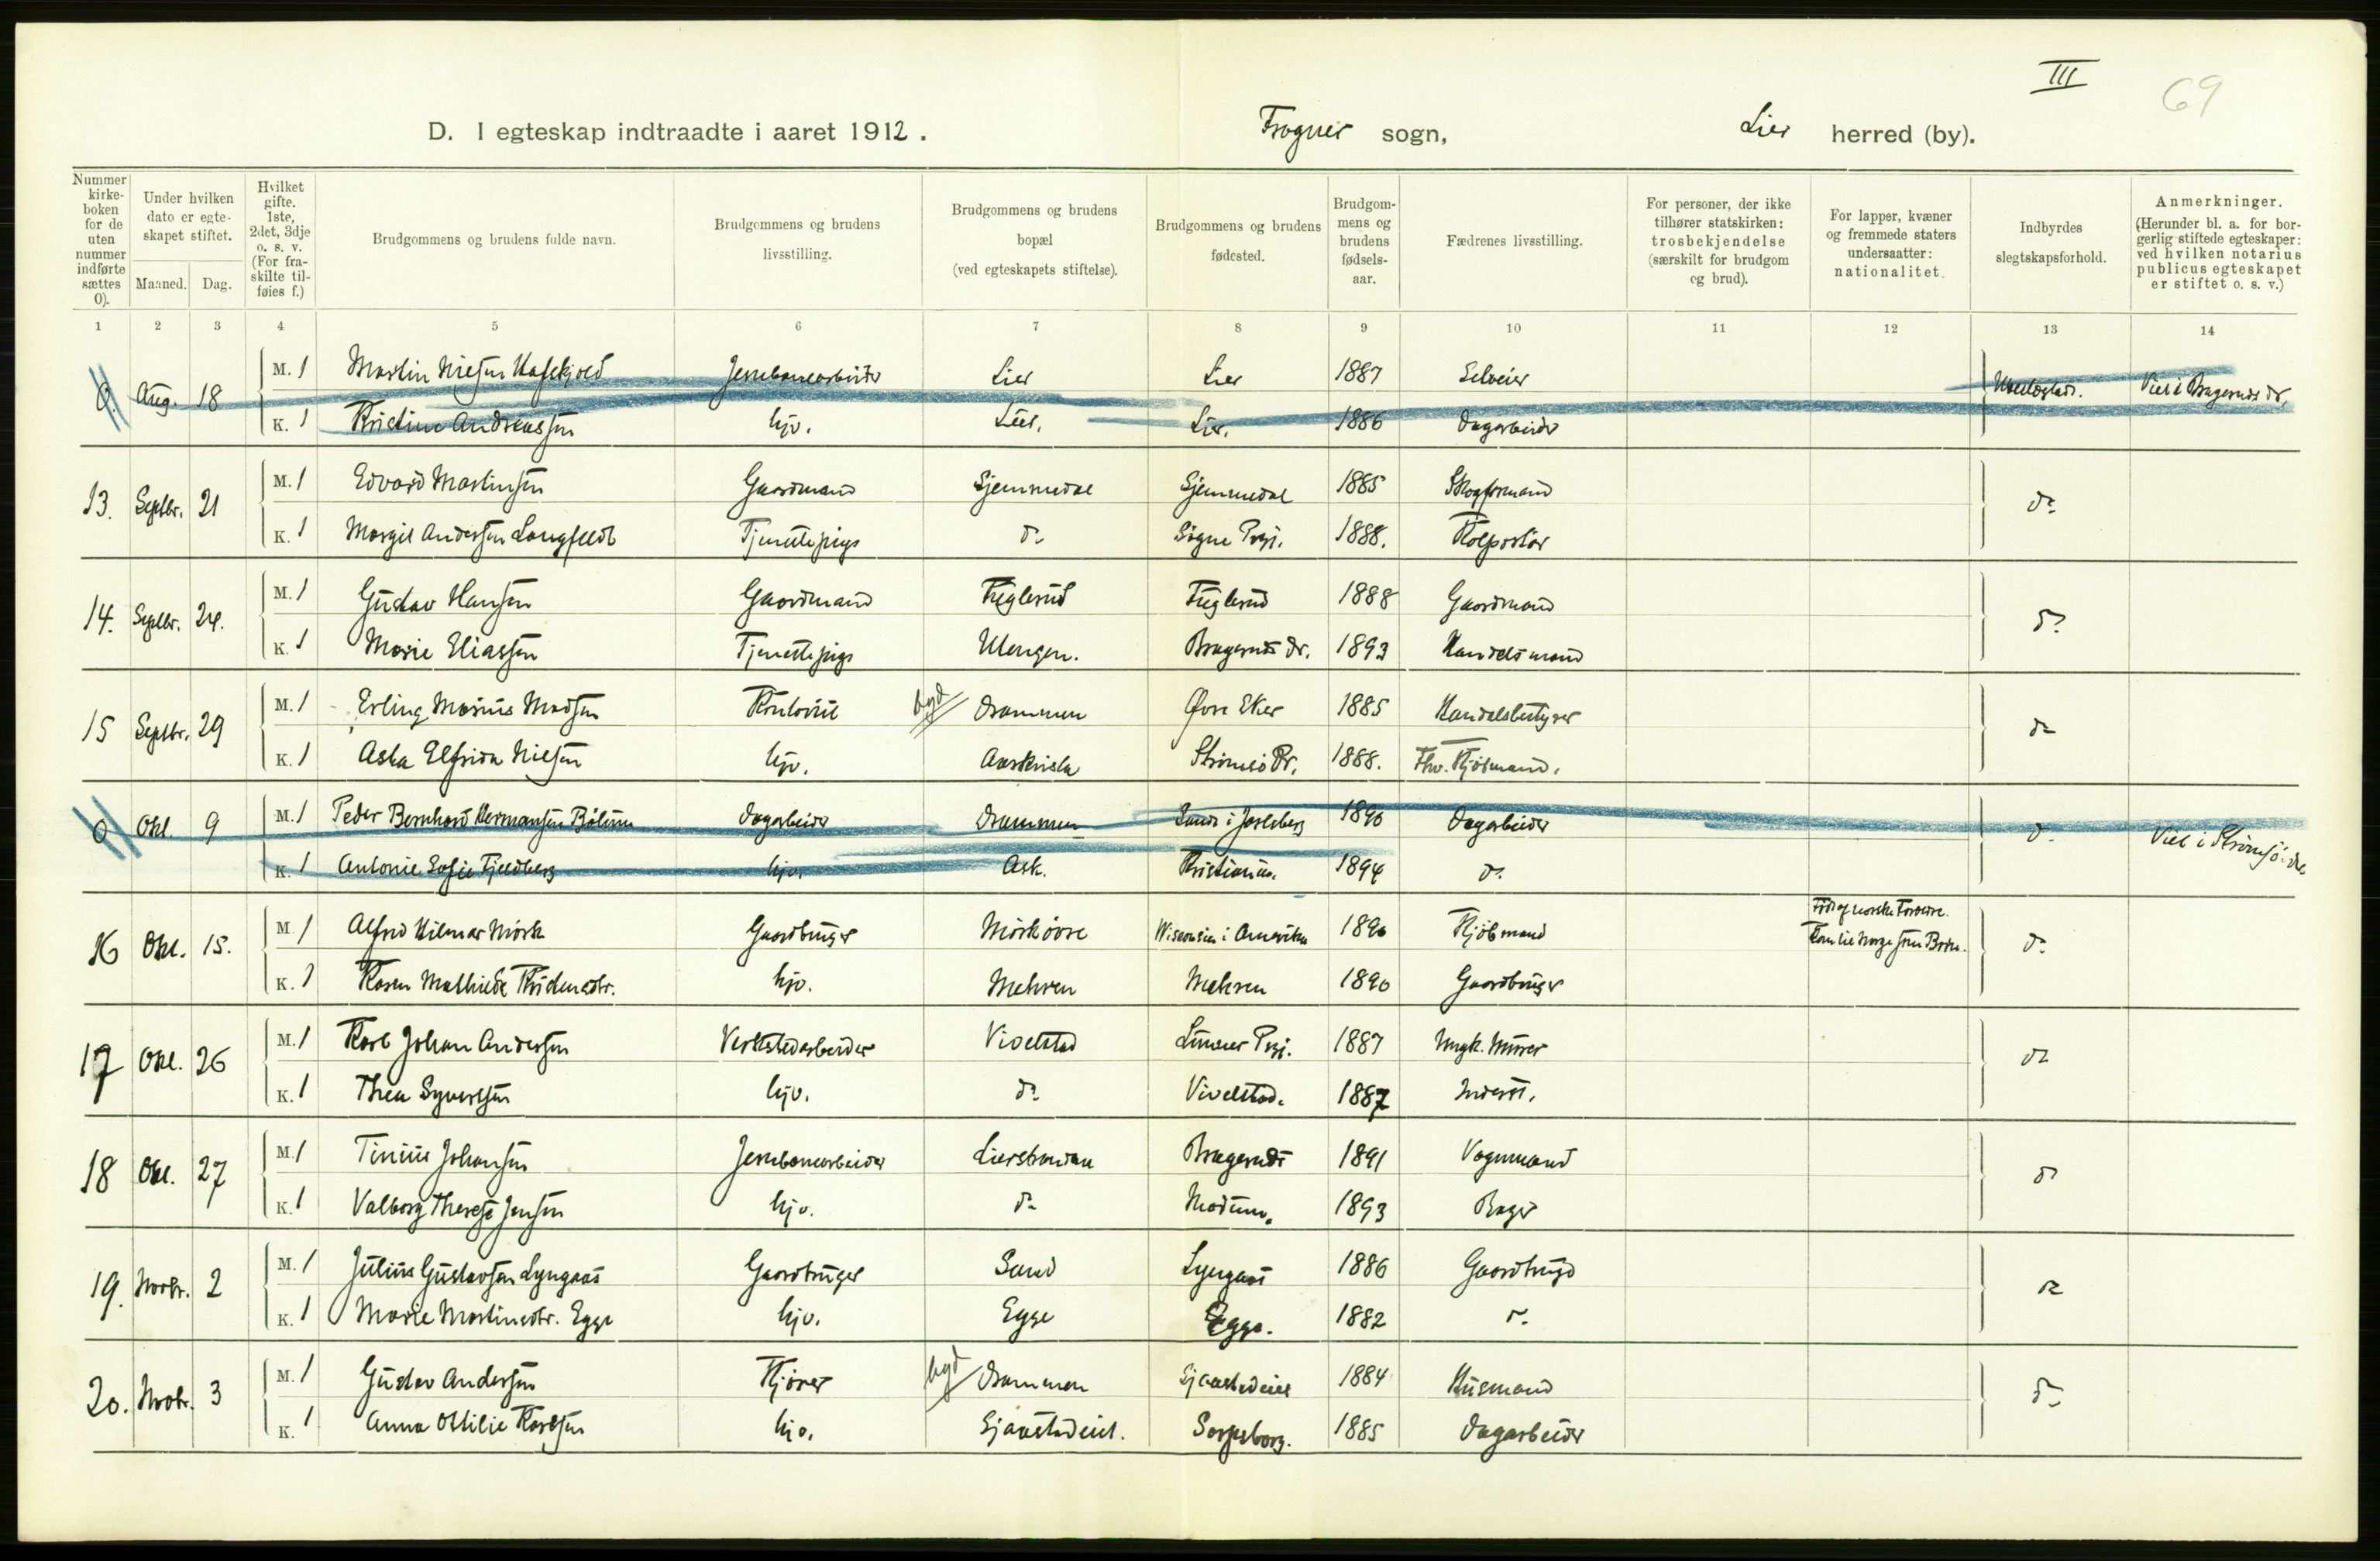 III
69
D. I egteskap indtraadte i aaret 1912.
Frogner sogn,
Lier herred (by).
Nummer kirkeboken for de uten nummer indførte sættes 0).
Under hvilken dato er egteskapet stiftet.
Maaned. Dag.
Hvilket gifte. 1ste, 2det, 3dje o. s. v. (For fraskilte tilføies f.)
Brudgommens og brudens fulde navn.
Brudgommens og brudens livsstilling.
Brudgommens og brudens bopæl (ved egteskapets stiftelse).
Brudgommens og brudens fødested.
Brudgommens og brudens fødselsaar.
Fædrenes livsstilling.
For personer, der ikke tilhører statskirken: trosbekjendelse (særskilt for brudgom og brud).
For lapper, kvæner og fremmede staters undersaatter: nationalitet.
Indbyrdes slegtskapsforhold.
Anmerkninger. (Herunder bl. a. for borgerlig stiftede egteskaper: ved hvilken notarius publicus egteskapet er stiftet o. s. v.)
1 2 3 4 5 6 7 8 9 10 11 12 13 14
0. Aug. 18 M. 1 Martin Nielsen Jernbanearbeider Lier Lier 1887 Selveier Viet i Bragernes Dr.
K. 1 Kristine Andreassen hjv. Lier. Lier. 1886 Dagarbeider
13. Septbr. 21 M. 1 Edvard Martinsen Gaardmand Gjemmedal Gjemmedal 1885 Skogformand do
K. 1 Margit Andersen Langfeldt Tjenestepige do Sogne Prgj. 1888. Kolportør
14. Septbr. 24. M. 1 Gustav Hansen Gaardmand Fuglerud Fuglerud 1888 Gaardmand do
K. 1 Marie Eliassen Tjenestepige Ulvengen. Bragernes Dr. 1893 Handelsmand
15 Septbr. 29 M. 1 Erling Marius Madsen Kontorist byd Drammen Øvre Eker 1885 Handelsbestyrer do
K. 1 Asta Elfrida Nielsen hjv. Aaskvisla Strømsø Dr. 1888. Fhv. Kjøbmand.
0 Okt. 9 M. 1 Peder Bernhard Hermansen Bølum Dagarbeider Drammen Sande i Jarlsberg 1890 Dagarbeider do Viet i Strømsø Dr.
K. 1 Antonie Sofie Fjeldberg hjv. Ask. Kristiania. 1894 do
16 Okt. 15. M. 1 Alfred Hilmar Mørk Gaardbruger Mørk øvre Wisconsin i Amerika 1890 Kjøbmand Født af norske Forældre. Kom til Norge som Barn. do
K. 1 Karen Mathilde Kristensdtr. hjv. Mehren Mehren 1890 Gaardbruger
17 Okt. 26 M. 1 Karl Johan Andersen Verkstedarbeider Vivelstad Lunner Prgj. 1887 Ungk. Murer do
K. 1 Thea Syvertsen hjv. do Vivelstad. 1887 Inderst.
18 Okt. 27 M. 1 Tinius Johansen Jernbanearbeider Lierstranden Bragernes 1891 Vognmand do
K. 1 Valborg Therese Jensen hjv. do Modum. 1893 Bager
19. Novbr. 2 M. 1 Julius Gustavsen Lyngaas Gaardbruger Sand Lyngaas 1886 Gaardbrug do
K. 1 Marie Martinsdtr. Egge hjv. Egge Egge. 1882 do
20. Novbr. 3 M. 1 Gustav Andersen Kjører byd Drammen Gjaastadeiet 1884 Husmand do
K. 1 Anna Ottilie Karlsen hjv. Gjaastadeiet. Sarpsborg. 1885 Dagarbeider